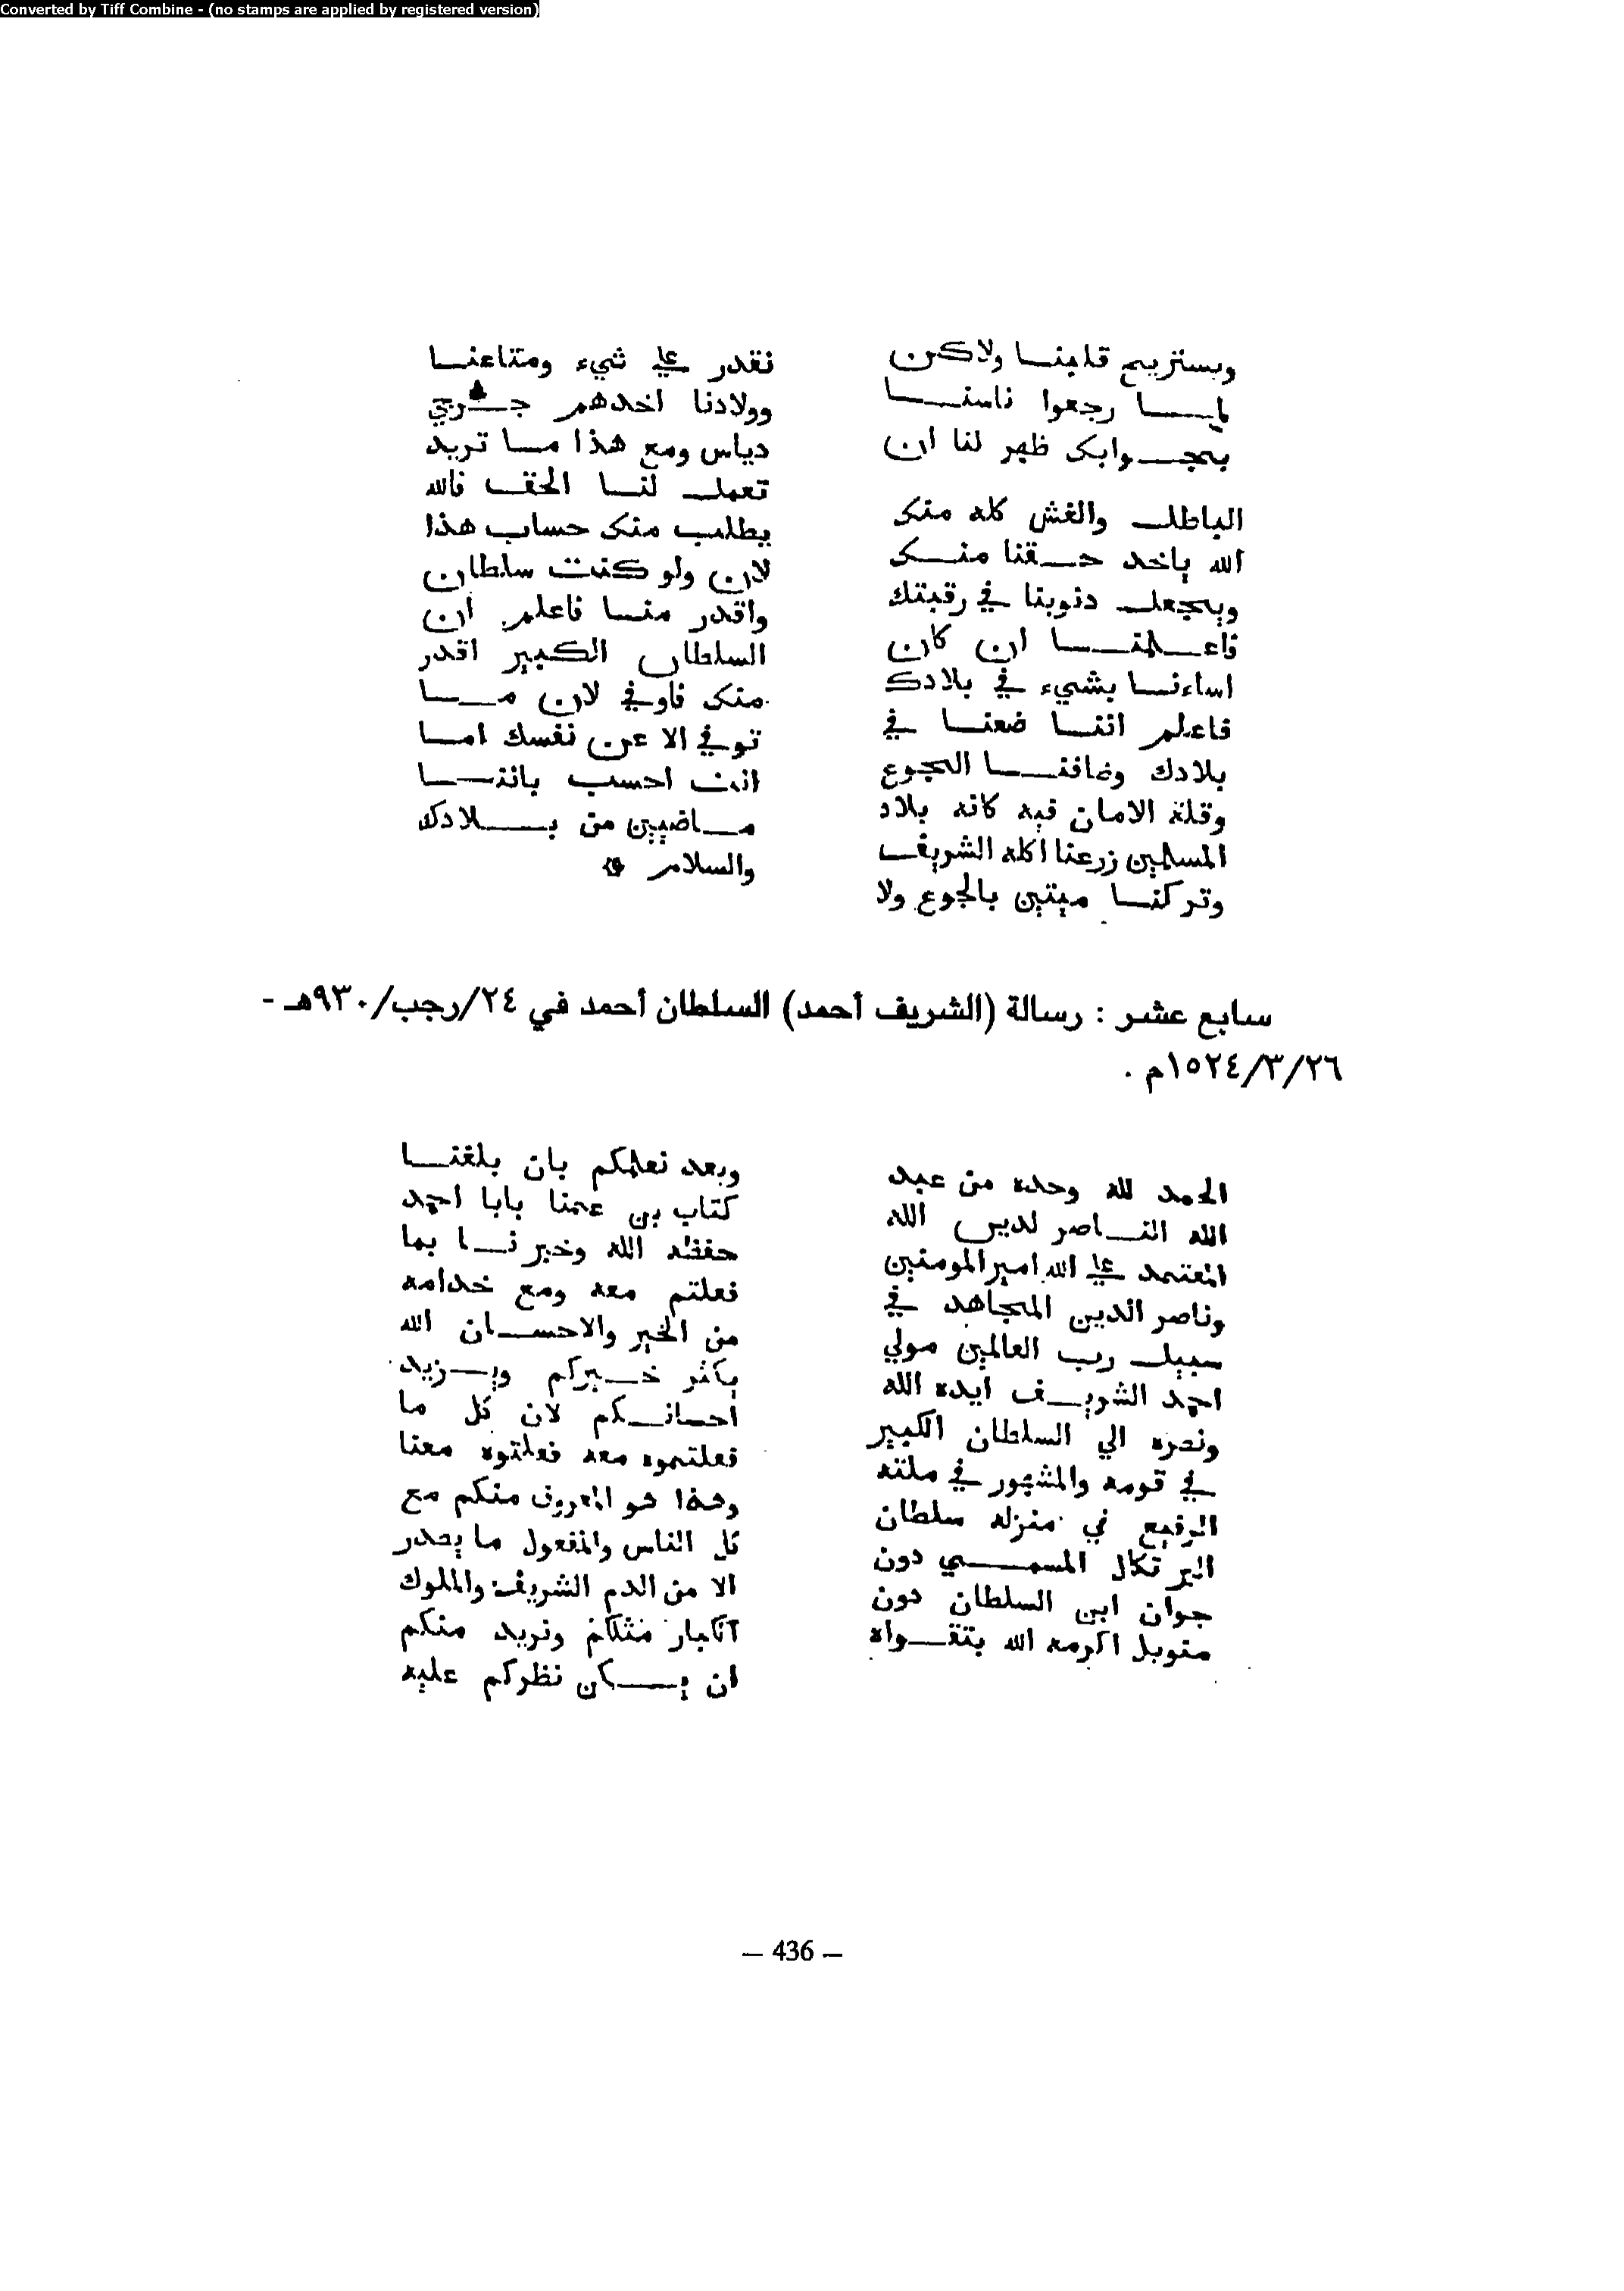 Converted by Tiff Combine - (no stamps are applied by registered version)
ويستريح قلبنا ولاكن
لما رجعوا ناسنا
بجوابك ظهر لنا ان
الباطل والغش كله منك
الله ياخد حقنا منك
ويجعل دنوبنا في رقبتك
ان كان
اساءنا بشيء في بلادك
فاعلم اننا ضعنا في
بلادك وضافنا الجوع
وقلة الامان فيه كانه بلاد
المسلمين زرعنا اكله الشريف
وتركنا ميتين بالجوع ولا
نقدر على شيء ومتاعنا
وولادنا اخدهم
دياس ومع هذا ما تريد
تعمل لنا الحق فالله
يطلب منك حساب هذا
لان ولو كنت سلطان
واقدر منا فاعلم ان
السلطان الكبير اقدر
منك فاوفي لان ما
توفي الا عن نفسك اما
انت احسب باننا
ماضيين من بلادك
والسلام
سابع عشر : رسالة (الشريف أحمد) السلطان أحمد في ٢٤/رجب/٩٣٠هـ -
٢٦/٣/١٥٢٤م .
الحمد لله وحده من عبد
الله الناصر لدين الله
المعتمد على الله امير المومنين
وناصر الدين المجاهد في
سبيل رب العالمين مولي
احمد الشريف ايده الله
ونصره الي السلطان الكبير
في قومه والمشهور في ملته
الرفيع في منزله سلطان
البرتكال المسمي دون
جوان ابن السلطان دون
منويل اكرمه الله بتقواه
وبعد نعلمكم بان بلغنا
كتاب بن عمنا بابا احمد
حفظه الله وخبرنا بما
فعلتم معه ومع خدامه
من الخير والاحسان الله
يكثر خيركم ويزيد
احسانكم لان كل ما
فعلتموه معه فعلتوه معنا
وهذا هو المعروف منكم مع
كل الناس والمفعول ما يصدر
الا من الدم الشريف والملوك
الكبار مثلكم ونريد منكم
ان يكن نظركم عليه
— 436 —